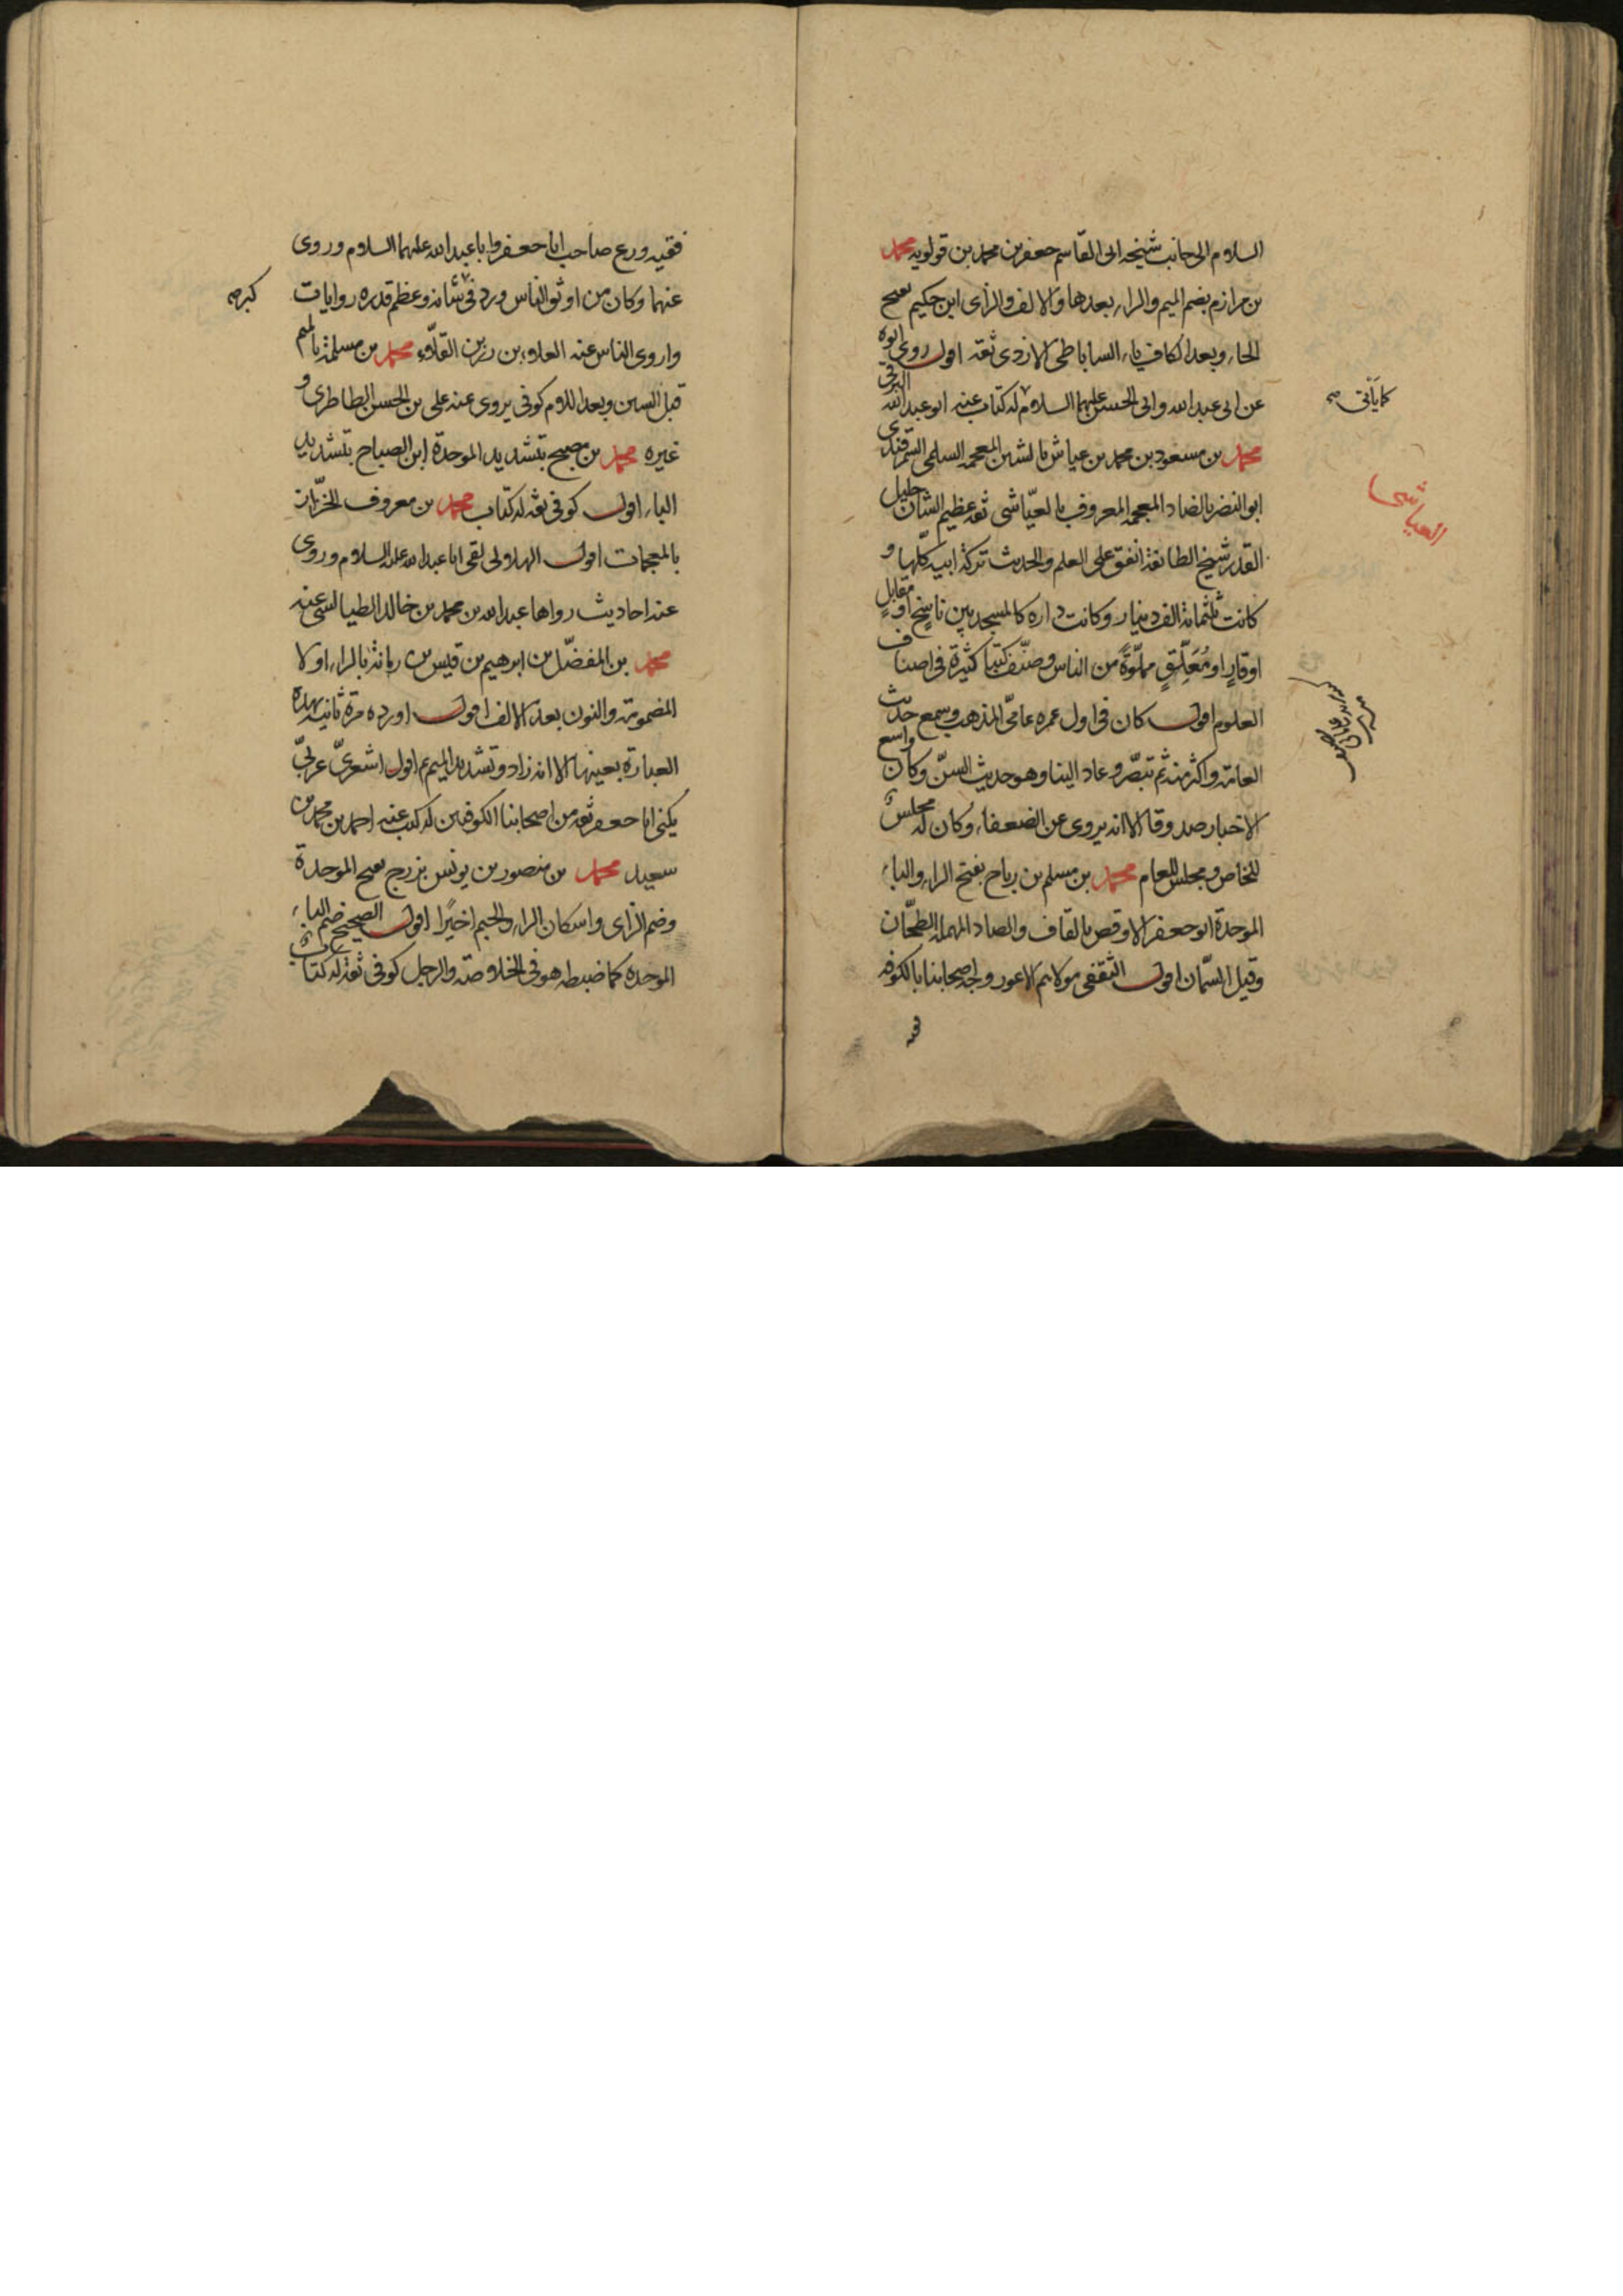 السلام الى جانب شيخه ابى القاسم جعفر بن محمد بن قولويه محمد
بن مرازم بضم الميم والراء بعدها والالف والزاى ابن حكيم بفتح
الحاء وبعد الكاف ياء الساباطى الازدى ثقة اقول روى ابوه
عن ابى عبد الله وابى الحسن عليهما السلام له كتاب عنه ابو عبد الله البرقى
محمد بن مسعود بن محمد بن عياش بالشين المعجمة السلمى السمرقندى
ابو النضر بالضاد المعجمة المعروف بالعيّاشى ثقة عظيم الشان جليل
القدر شيخ الطائفة انفق على العلم والحديث تركة ابيه كلّها و
كانت ثلثمائة الف دينار وكانت داره كالمسجد بين ناسخ او مقابل
او قارٍ او مُعَلِّقٍ مملوّةً من الناس وصنّف كتبا كثيرة فى اصناف
العلوم اقول كان فى اول عمره عامّى المذهب وسمع حديث
العامة واكثر منه ثم تبصّر وعاد الينا وهو حديث السنّ وكان واسع
الاخبار صدوقا الا انه يروى عن الضعفاء وكان له مجلسٌ
للخاص ومجلس للعام محمد بن مسلم بن رباح بفتح الراء والباء
الموحدة ابو جعفر الاوقص بالقاف والصاد المهملة الطحّان
وقيل السمّان اقول الثقفى مولاهم الاعور وجه اصحابنا بالكوفة
كما يأتى
العياشى
فقيه ورع صاحب ابا جعفر وابا عبد الله عليهما السلام وروى
عنهما وكان من اوثق الناس ورد فى شانه وعظم قدره روايات
واروى الناس عنه العلاء بن رزين القلّاء محمد بن مسلمة بالميم
قبل السين وبعد اللام كوفى يروى عنه على بن الحسن الطاطرى و
غيره محمد بن مصبح بتشديد الموحدة ابن الصباح بتشديد
الباء اقول كوفى ثقة له كتاب محمد بن معروف الخزّاز
بالمعجمات اقول الهلالى لقى ابا عبد الله عليه السلام وروى
عنه احاديث رواها عبد الله بن محمد بن خالد الطيالسى عنه
محمد بن المفضّل بن ابرهيم بن قيس بن رمانة بالراء اولا
المضمومة والنون بعد الالف اقول اورده مرة ثانية بهذه
العبارة بعينها الا انه زاد وتشديد الميم اقول اشعرىّ عربىّ
يكنى ابا جعفر ثقة من اصحابنا الكوفيين له كتب عنه احمد بن محمد بن
سعيد محمد بن منصور بن يونس بزرج بفتح الموحدة
وضم الزاى واسكان الراء والجيم اخيرًا اقول الصحيح ضم الباء
الموحدة كما ضبطه هو فى الخلاصة والرجل كوفى ثقة له كتاب